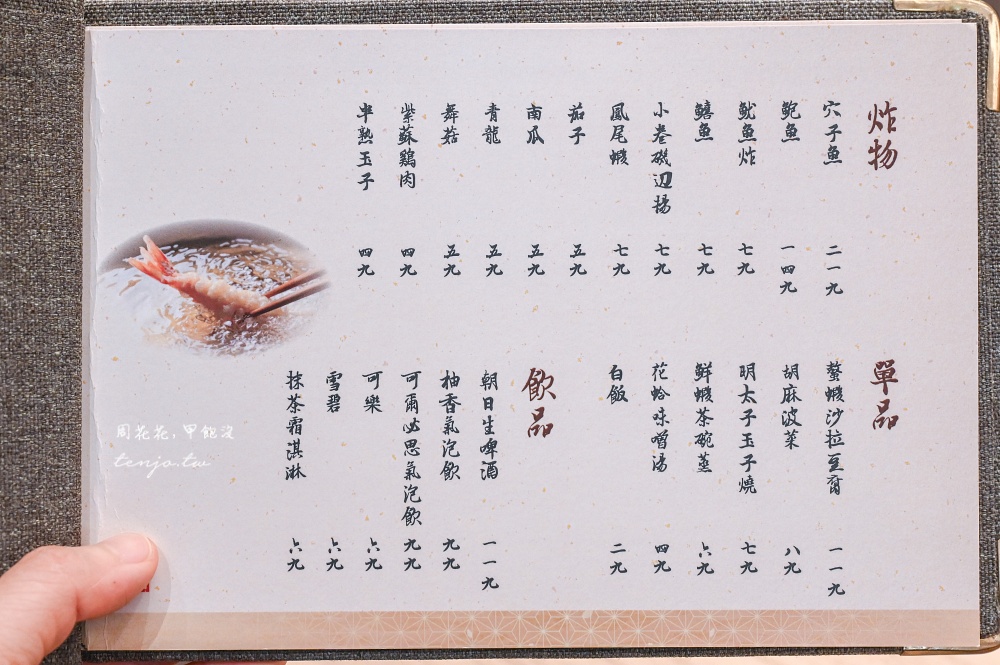 炸物
穴子魚 二一九
鮑魚 一四九
魷魚炸 七九
鱚魚 七九
小卷磯辺揚 七九
鳳尾蝦 七九
茄子 五九
南瓜 五九
青龍 五九
舞菇 五九
紫蘇鶏肉 四九
半熟玉子 四九
單品
螯蝦沙拉豆腐 一一九
胡麻波菜 八九
明太子玉子燒 七九
鮮蝦茶碗蒸 六九
花蛤味噌湯 四九
白飯 二九
飲品
朝日生啤酒 一一九
柚香氣泡飲 九九
可爾必思氣泡飲 九九
可樂 六九
雪碧 六九
抹茶霜淇淋 六九
周花花,甲飽沒
tenjo.tw